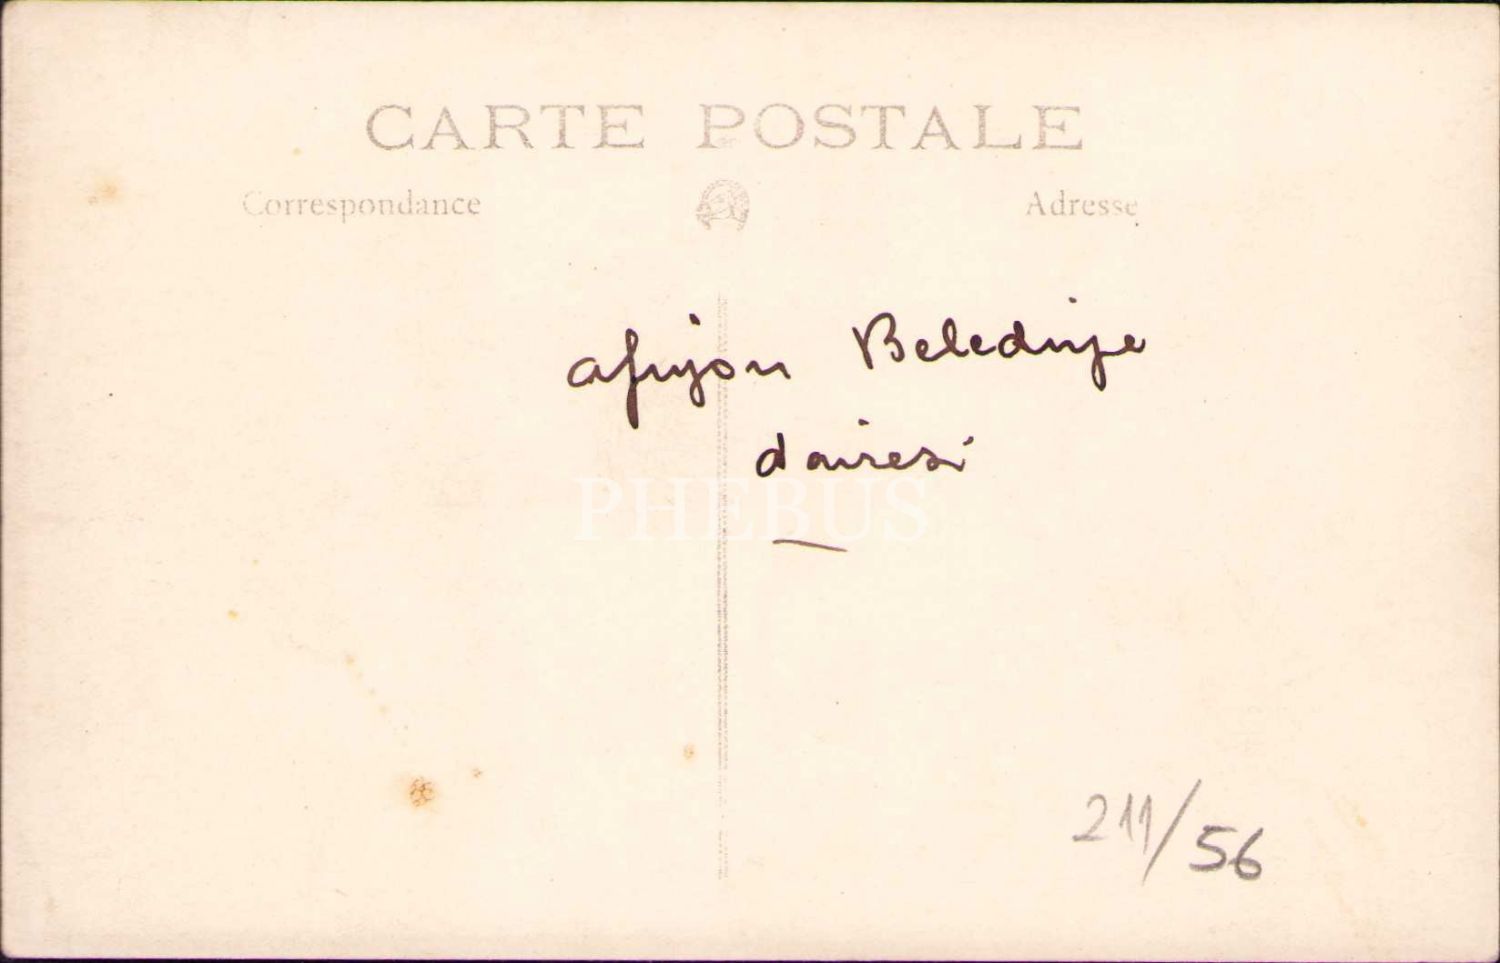 CARTE POSTALE
Correspondance
Adresse
Afyon Belediye
dairesi
PHEBUS
211/56